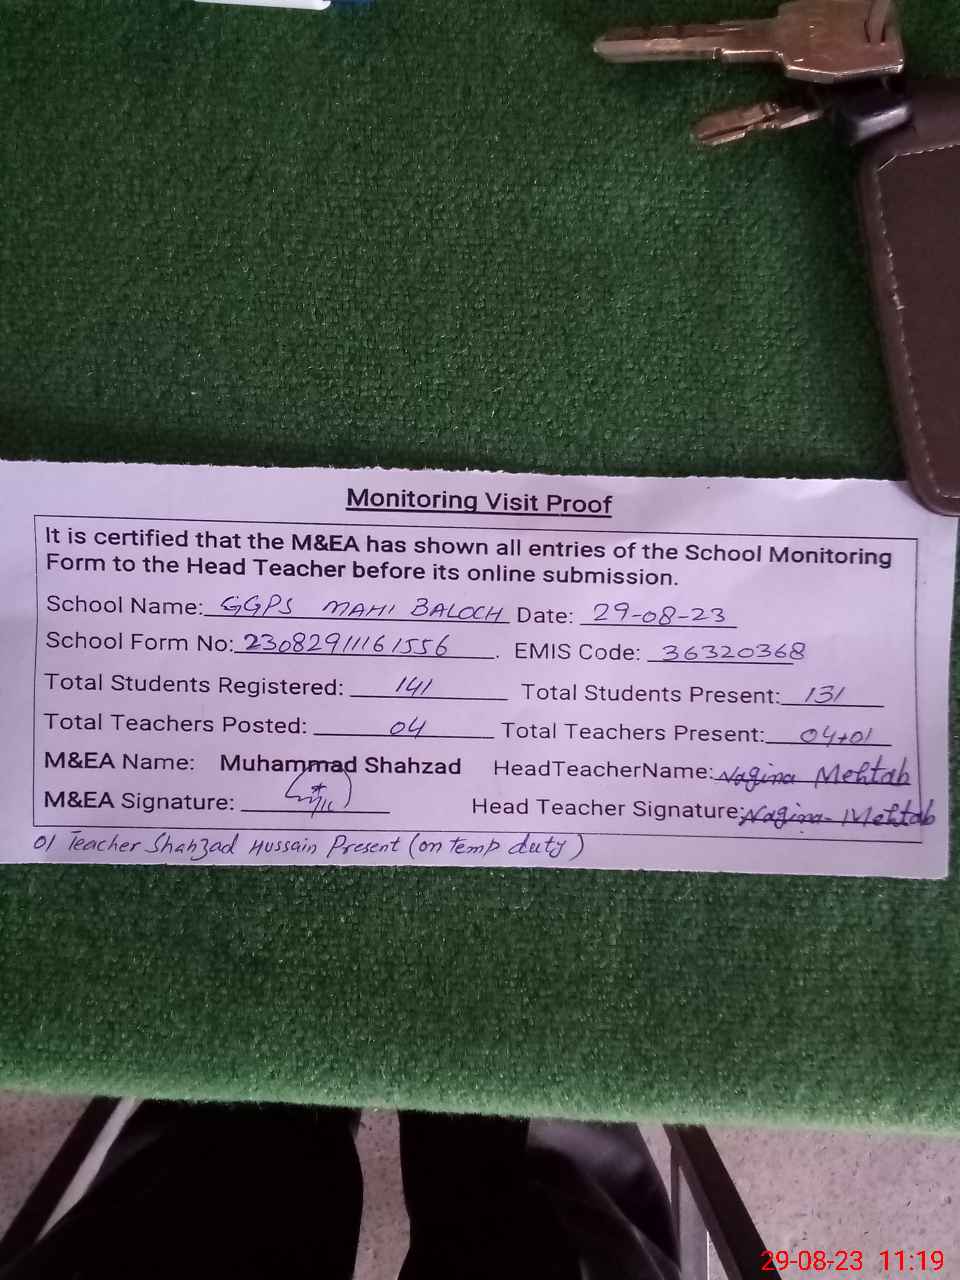 Monitoring Visit Proof
It is certified that the M&EA has shown all entries of the School Monitoring
Form to the Head Teacher before its online submission.
School Name: GGPS MAHI BALOCH Date: 29-08-23
School Form No: 23082911161556. EMIS Code: 36320368
Total Students Registered: 141 Total Students Present: 131
Total Teachers Posted: 04 Total Teachers Present: 04+01
M&EA Name: Muhammad Shahzad HeadTeacherName: Nagina Mehtab
M&EA Signature: Head Teacher Signature: Nagina Mehtab
01 Teacher Shahzad Hussain Present (on Temp duty)
29-08-23 11:19